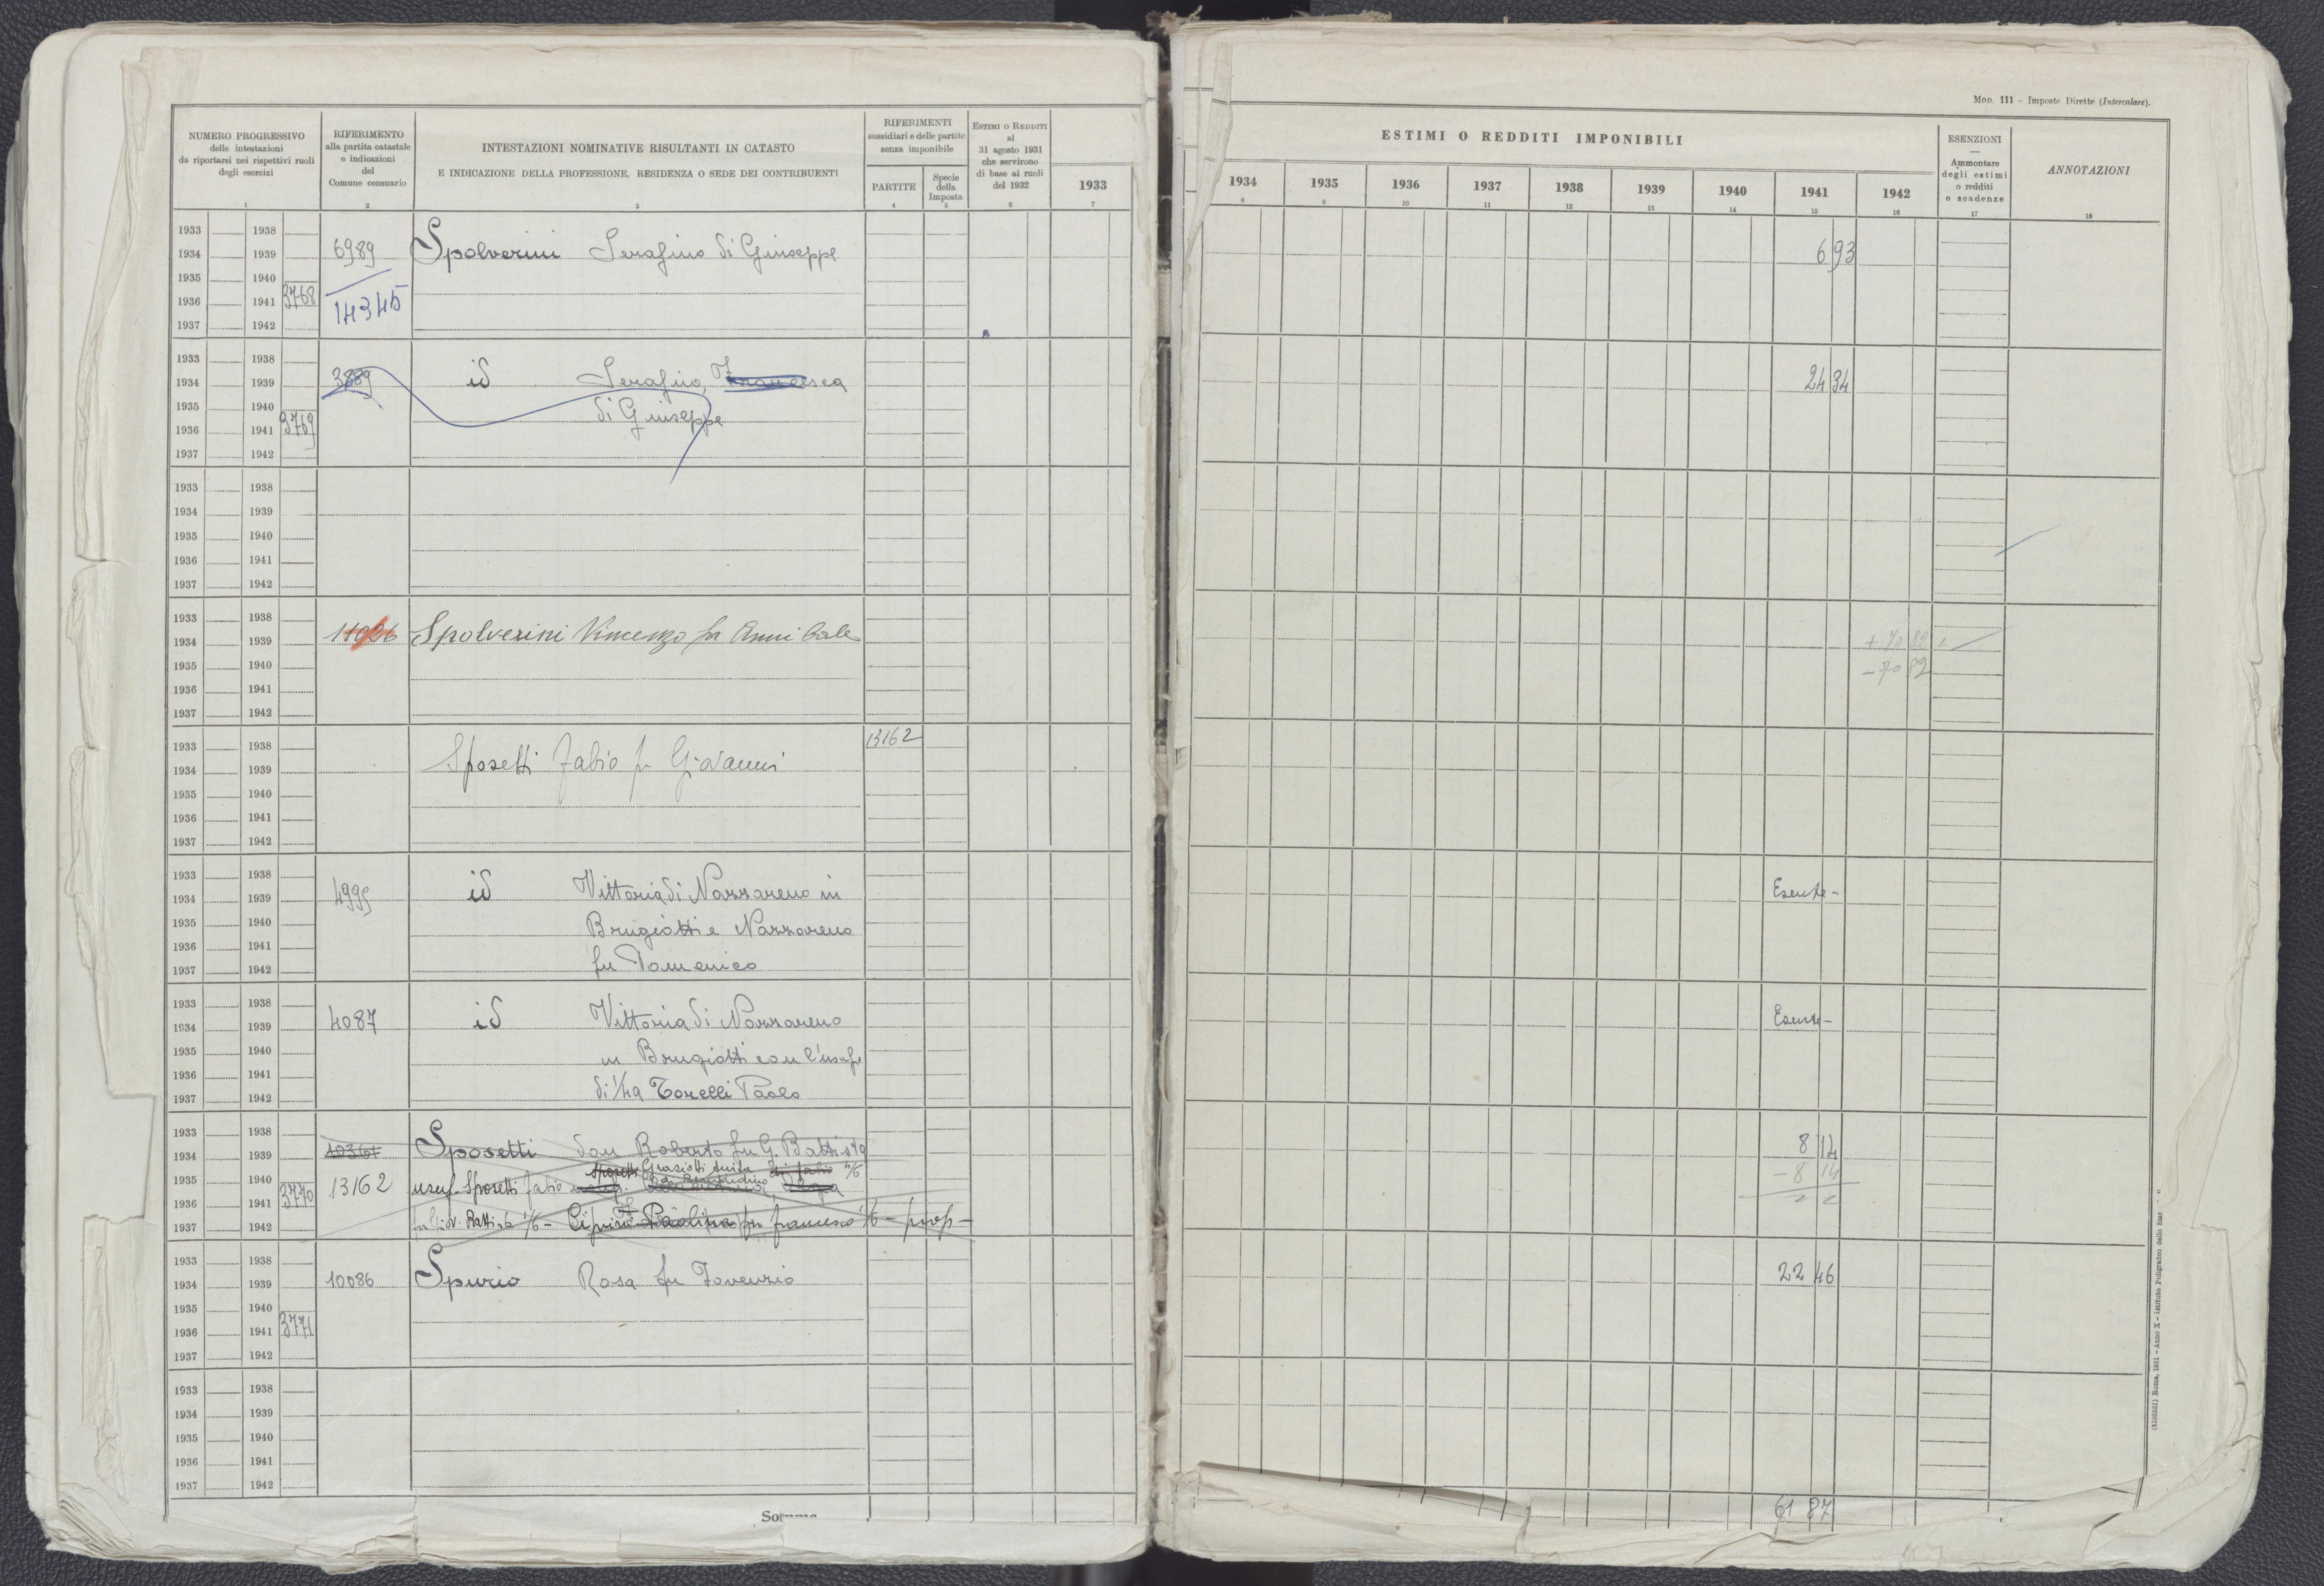 MOD. 111 - Imposte Dirette (Intercalare).
NUMERO PROGRESSIVO
delle intestazioni
da riportarsi nei rispettivi ruoli
degli esercizi
1
RIFERIMENTO
alla partita catastale
e indicazioni
del
Comune censuario
2
INTESTAZIONI NOMINATIVE RISULTANTI IN CATASTO
E INDICAZIONE DELLA PROFESSIONE, RESIDENZA O SEDE DEI CONTRIBUENTI
3
RIFERIMENTI
sussidiari e delle partite
senza imponibile
PARTITE
4
Specie
della
Imposta
5
ESTIMI O REDDITI
al
31 agosto 1931
che servirono
di base ai ruoli
del 1932
6
1933
7
ESTIMI O REDDITI IMPONIBILI
1934
8
1935
9
1936
10
1937
11
1938
12
1939
13
1940
14
1941
15
1942
16
ESENZIONI
—
Ammontare
degli estimi
o redditi
e scadenze
17
ANNOTAZIONI
18
1933 1938
1934 1939 6989 Spolverini Serafino di Giuseppe 6 93
1935 1940
1936 1941 3768 14345
1937 1942
1933 1938
1934 1939 3889 id Serafino, Francesca 24 34
1935 1940 di Giuseppe
1936 1941 3769
1937 1942
1933 1938
1934 1939
1935 1940
1936 1941
1937 1942
1933 1938
1934 1939 11026 Spolverini Vincenzo fu Annibale + 70 82
1935 1940 - 70 82
1936 1941
1937 1942
1933 1938 13162
1934 1939 Sposetti Fabio fu Giovanni
1935 1940
1936 1941
1937 1942
1933 1938
1934 1939 4995 id Vittoria di Nazzareno in Esente -
1935 1940 Brugiotti e Nazzareno
1936 1941
1937 1942 fu Domenico
1933 1938
1934 1939 4087 id Vittoria di Nazzareno Esente -
1935 1940 in Brugiotti con l'usufr.
1936 1941
1937 1942 di 1/4 a Torelli Paolo
1933 1938
1934 1939 10367 Sposetti don Roberto fu G. Battista 8 14
Sposetti Graziotti Anita di Fabio
1935 1940 13162 usuf. Sposetti Fabio - 8 14
1936 1941 3770
1937 1942 fu Giov. Battista 1/6 - Ciprini Paolina fu Francesco 1/6 - prop -
1933 1938
1934 1939 10086 Spurio Rosa fu Fovenzio 22 46
1935 1940
1936 1941 3771
1937 1942
1933 1938
1934 1939
1935 1940
1936 1941
1937 1942
61 87